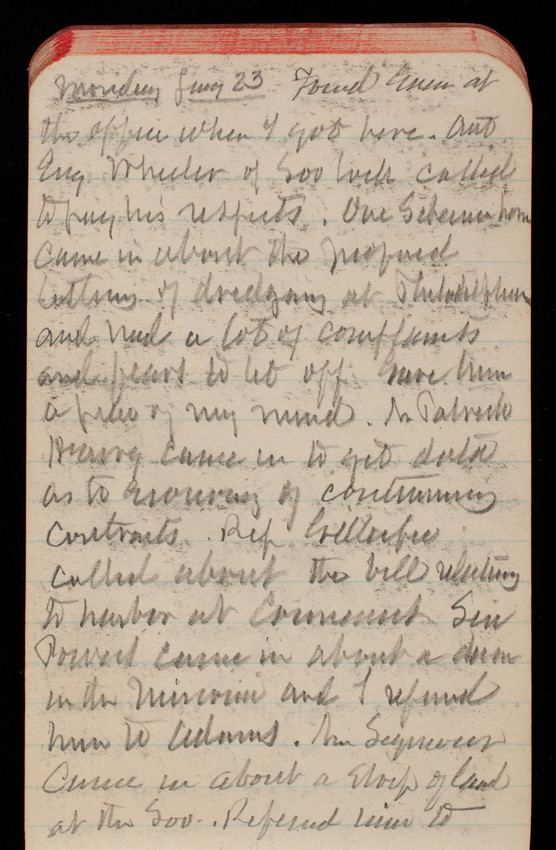 Monday Jany 23 Found Green at
the office when I got here. Ast
Eng. Wheeler of Soo lock called
to pay his respects. One Schermerhorn
came in about the proposed
letting of dredging at Philadelphia
and had a lot of complaints
and fears to let off. Gave him
a piece of my mind. Mr
came in to get data
as to economy of continuing
contracts. Rep.
called about the bill relating
to harbor at Conneaut. Gen
came in about a dam
in the Missouri and I referred
him to Adams. Mr Seymour
came in about a strip of land
at the Soo. Referred him to